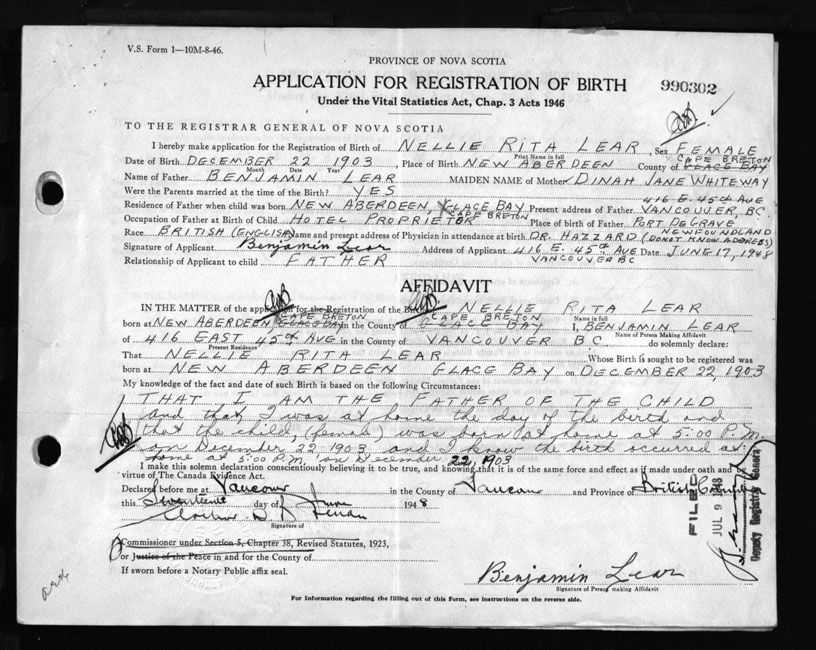 V.S. Form 1—10M-8-46.
PROVINCE OF NOVA SCOTIA
APPLICATION FOR REGISTRATION OF BIRTH 990302
Under the Vital Statistics Act, Chap. 3 Acts 1946
TO THE REGISTRAR GENERAL OF NOVA SCOTIA
I hereby make application for the Registration of Birth of NELLIE RITA LEAR, Sex FEMALE
Print Name in full
CAPE BRETON
Date of Birth DECEMBER 22 1903, Place of Birth NEW ABERDEEN County of GLACE BAY
Month Date Year
Name of Father BENJAMIN LEAR MAIDEN NAME of Mother DINAH JANE WHITEWAY
Were the Parents married at the time of the Birth? YES 416 E. 45th AVE
Residence of Father when child was born NEW ABERDEEN, GLACE BAY Present address of Father VANCOUVER, BC.
CAPE BRETON
Occupation of Father at Birth of Child HOTEL PROPRIETOR Place of birth of Father PORT DEGRAVE
NEWFOUNDLAND
Race BRITISH (ENGLISH) Name and present address of Physician in attendance at birth DR. HAZZARD (DONOT KNOW ADDRESS)
Signature of Applicant Benjamin Lear Address of Applicant 416 E. 45th AVE Date JUNE 17, 1948
Relationship of Applicant to child FATHER VANCOUVER BC
AFFIDAVIT
IN THE MATTER of the application for the Registration of the Birth of NELLIE RITA LEAR
Name in full
CAPE BRETON CAPE BRETON
born at NEW ABERDEEN GLACE BAY in the County of GLACE BAY I, BENJAMIN LEAR
Name of Person Making Affidavit
of 416 EAST 45th AVE in the County of VANCOUVER BC do solemnly declare:
Present Residence
That NELLIE RITA LEAR Whose Birth is sought to be registered was
born at NEW ABERDEEN GLACE BAY on DECEMBER 22, 1903
My knowledge of the fact and date of such Birth is based on the following Circumstances:
THAT I AM THE FATHER OF THE CHILD
and that I was at home the day of the birth and
that the child, (female) was born at home at 5:00 P.M.
on December 22 1903 and I know the birth occurred at
home at 5:00 P.M. on December 22, 1903
I make this solemn declaration conscientiously believing it to be true, and knowing that it is of the same force and effect as if made under oath and by
virtue of The Canada Evidence Act.
Declared before me at Vancouver in the County of Vancouver and Province of British Columbia
this Seventeenth day of June 1948
Signature of
Commissioner under Section 5, Chapter 38, Revised Statutes, 1923,
or Justice of the Peace in and for the County of
If sworn before a Notary Public affix seal.
Benjamin Lear
Signature of Person making Affidavit
For Information regarding the filling out of this Form, see instructions on the reverse side.
FILED
JUL 9 1948
Deputy Registrar General